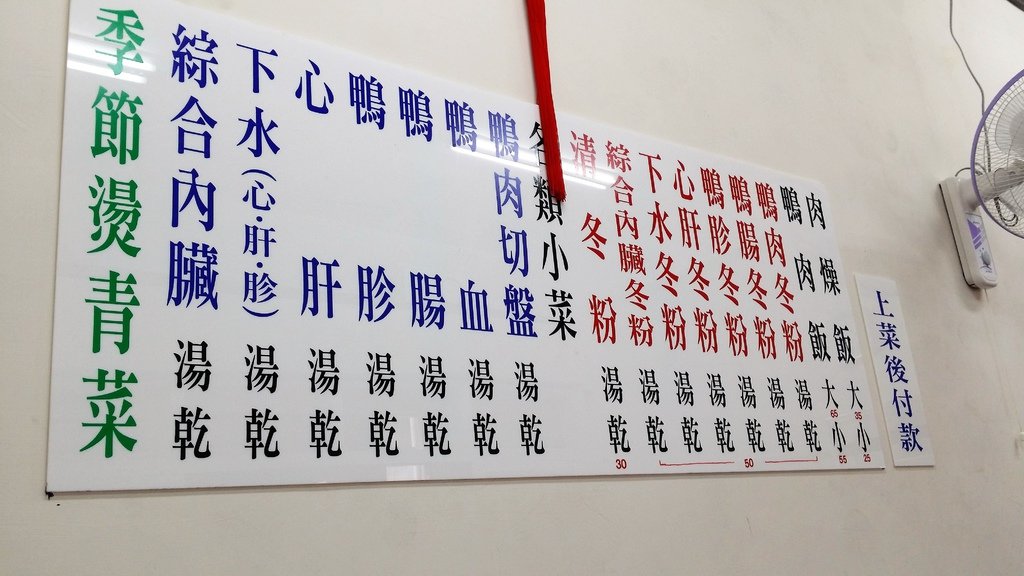 上菜後付款
肉燥飯 大35 小25
鴨肉飯 大65 小55
鴨肉冬粉 湯 乾
鴨腸冬粉 湯 乾
鴨胗冬粉 湯 乾
心肝冬粉 湯 乾
下水冬粉 湯 乾
綜合內臟冬粉 湯 乾
50
清冬粉 湯 乾 30
各類小菜
鴨肉切盤 湯 乾
鴨血 湯 乾
鴨腸 湯 乾
鴨胗 湯 乾
心肝 湯 乾
下水(心·肝·胗) 湯 乾
綜合內臟 湯 乾
季節燙青菜